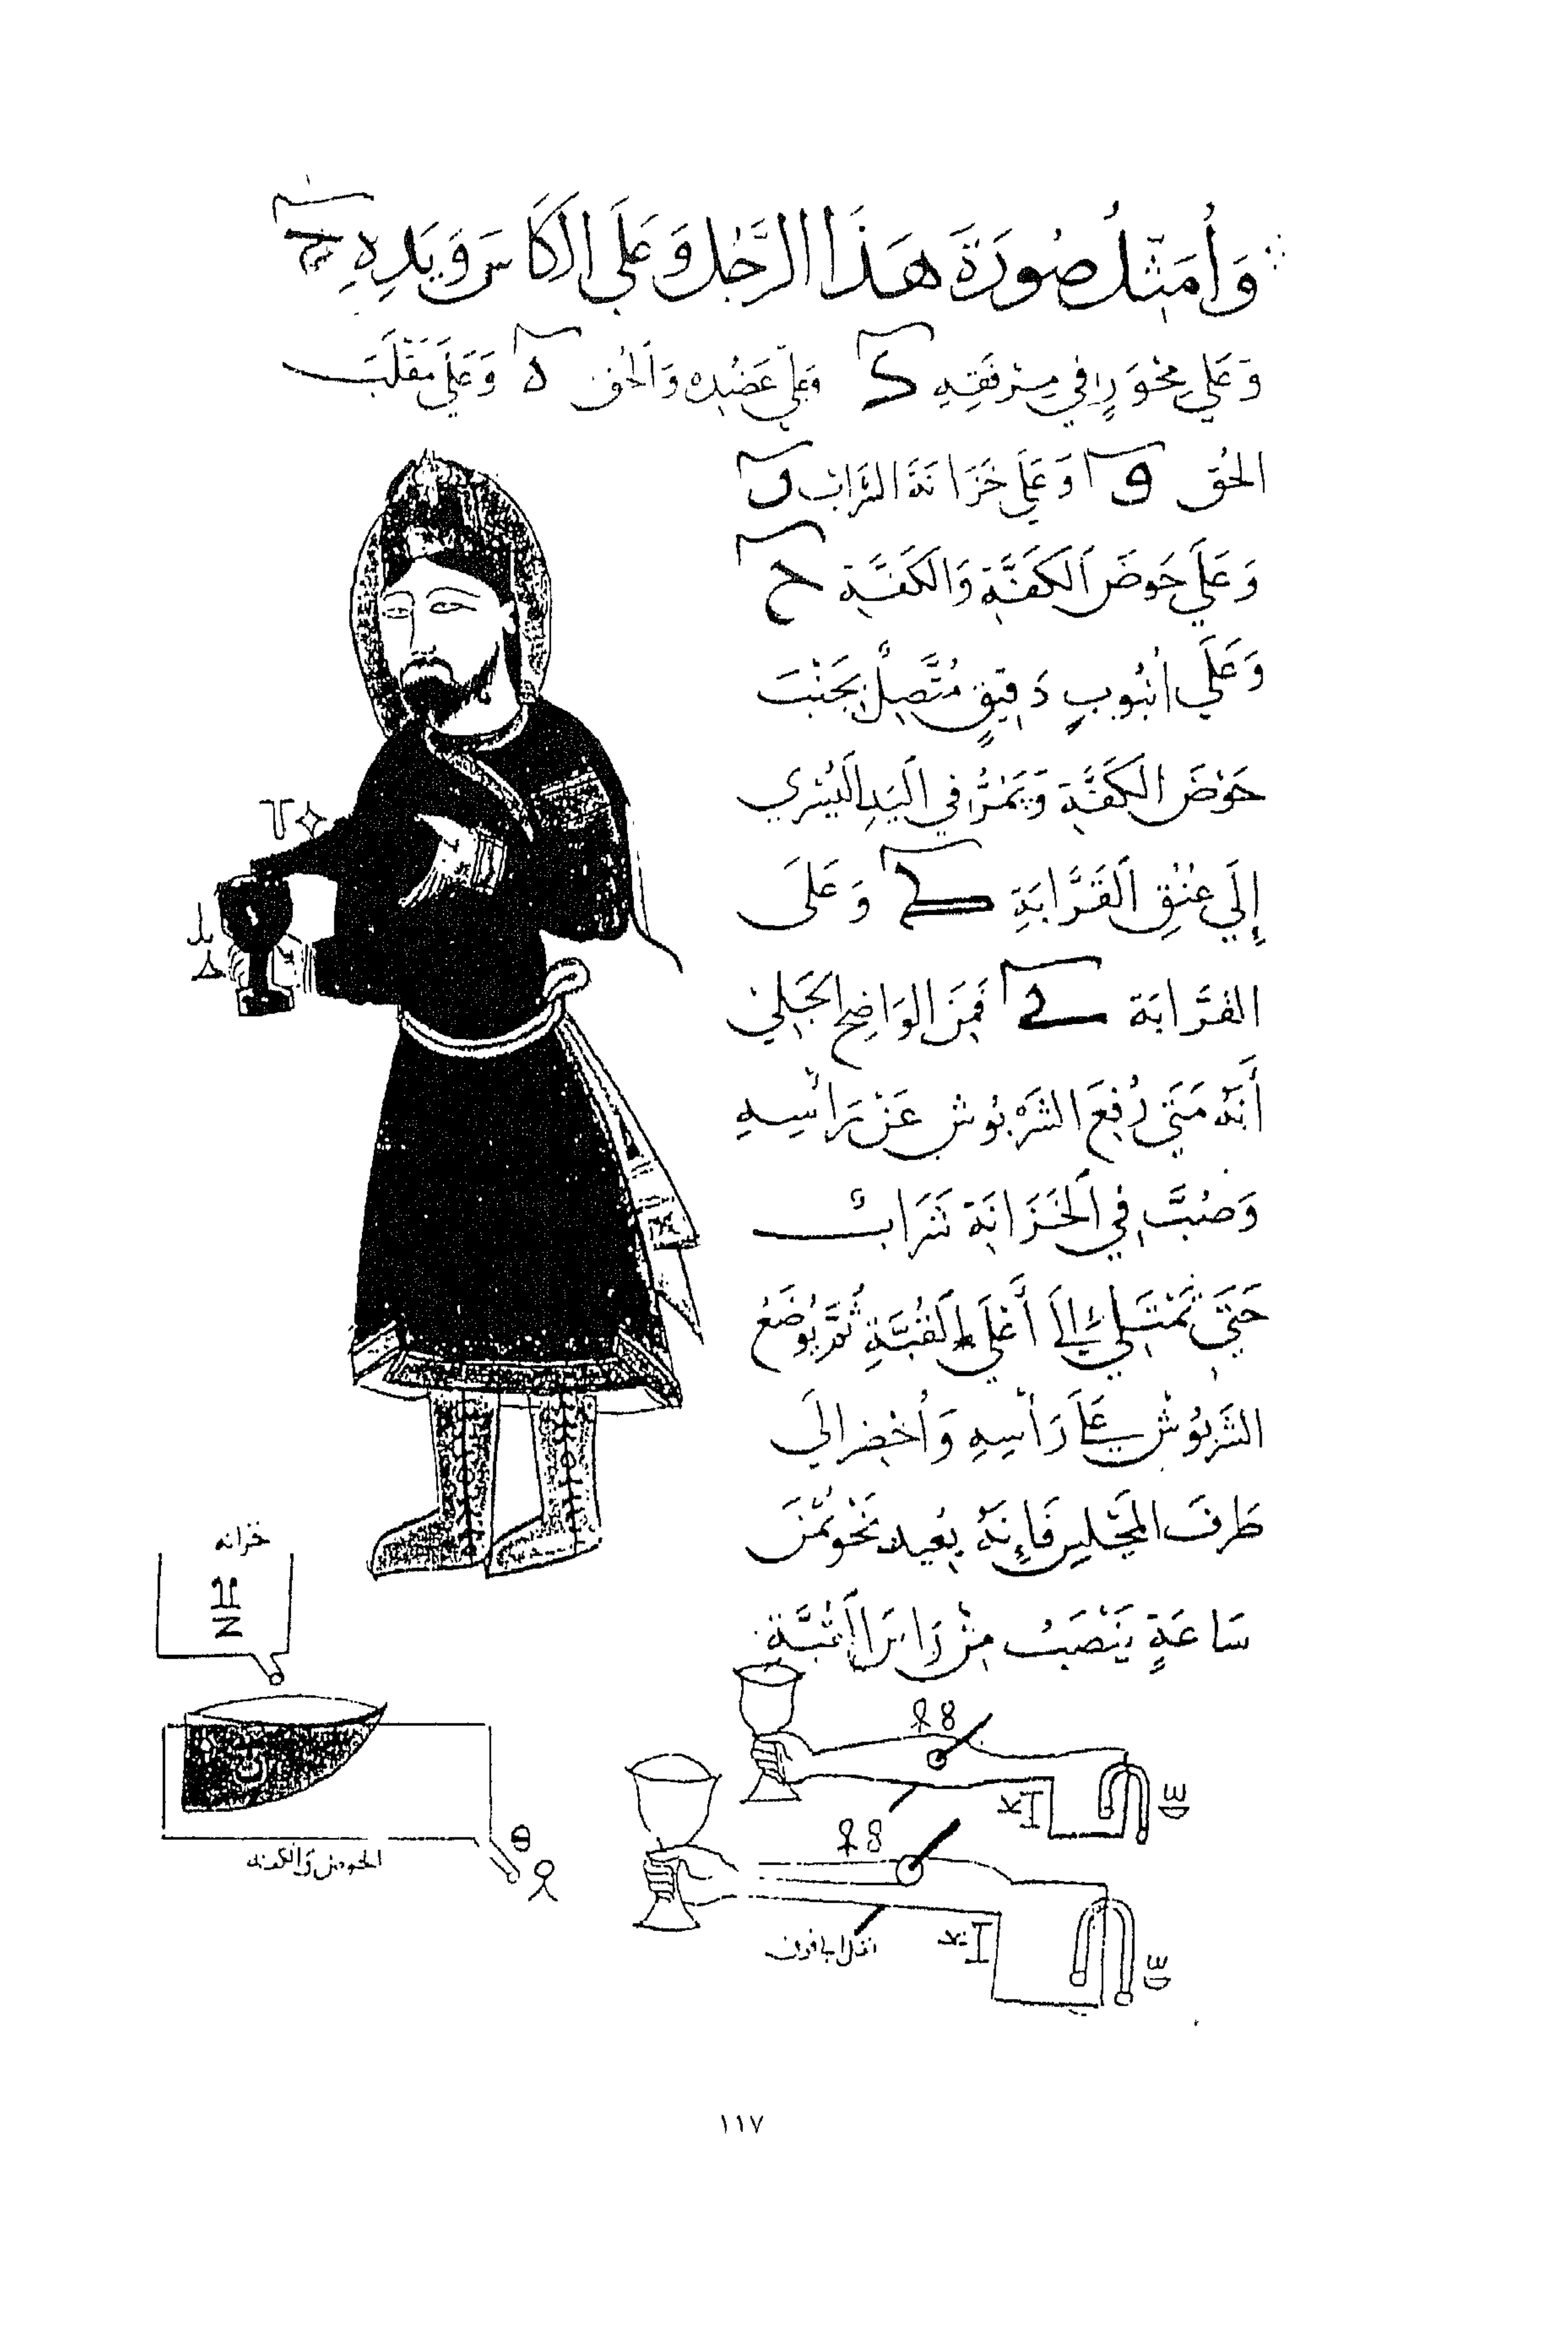 وَأُمَثِّلُ صُورَةَ هَذَا الرَّجُلِ وَعَلَى الْكَاسِ وَيَدِهِ ج
وَعَلَى مِحْوَرٍ فِي مِرْفَقِهِ د وَعَلَى عَضُدِهِ وَالحُقِّ ه وَعَلَى مَقْلَبِ
الحُقِّ و وَعَلَى خَزَانَةِ الشَّرَابِ ز
وَعَلَى حَوضِ الْكَفَّةِ وَالْكَفَّةِ ح
وَعَلَى انْبُوبٍ دَقِيقٍ مُتَّصِلٌ بِجَنْبِ
حَوْضِ الْكَفَّةِ وَيَمُرُّ فِي الْيَدِ الْيُسْرَي
إِلَي عُنُقِ الْقَرَّابَةِ ك وَعَلَى
القَرَّابَة فَمِنَ الوَاضِحِ الجَلِيِّ
أَنَّهُ مَتَى رُفِعَ الشَّرْبُوشُ عَنْ رَأْسِهِ
وَصُبَّ فِي الْخَزَانَةِ شَرَابٌ
حَتَّى تَمْتَلِئ إِلَى أَعْلَى الْقُبَّةِ ثُمَّ يُوضَعُ
الشَّرْبُوشُ عَلَى رَأْسِهِ وَأُحْضِرَ إلَى
طَرَفِ المَجْلِسِ فَإِنَّهُ بُعَيد نَحْوِ ثُمْنِ
سَاعَةٍ يَنْصَبُّ مِنْ
خزانه
الحوض والكفه
١١٧